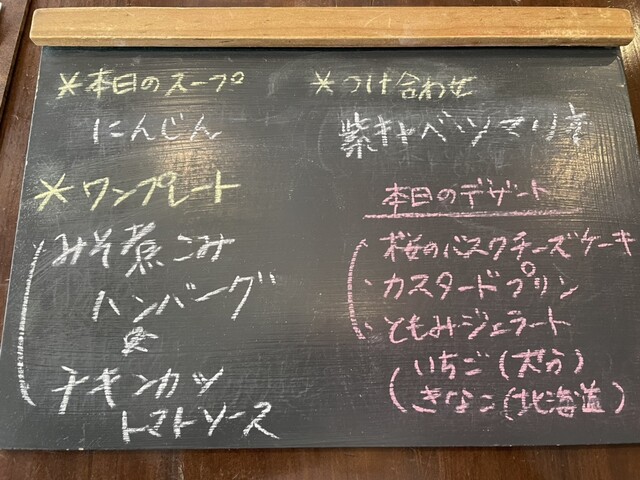 *本日のスープ
にんじん
*つけ合わせ
紫キャベツマリネ
*ワンプレート
みそ煮こみ
ハンバーグ
チキンカツ
トマトソース
本日のデザート
桜のバスクチーズケーキ
カスタードプリン
ともみジェラート
いちご(大分)
きなこ(北海道)